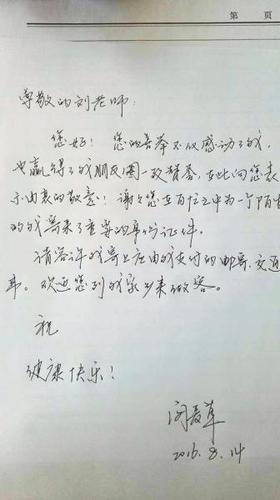 第 页
尊敬的刘老师:
您好! 您的善举不仅感动了我,
也赢得了我朋友圈一致赞誉,在此向您表
示由衷的敬意!谢谢您在百忙之中为一个陌生
的我寄来了重要的身份证件。
请容许我寄上应由我支付的邮寄、交通
费。欢迎您到我家乡来做客。
祝
健康快乐!
闵麦草
2016.8.14